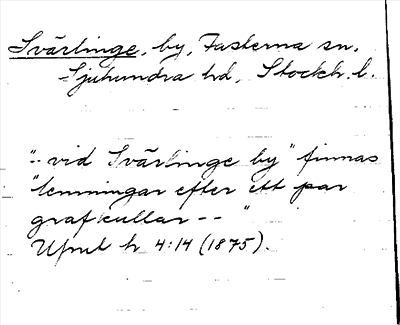 Svärlinge, by, Fasterna sn,
Sjuhundra hd, Stockh. l.
"-- vid Svärlinge by" finnas
"lemningar efter ett par
grafkullar -- "
Uful h 4:14 (1875).